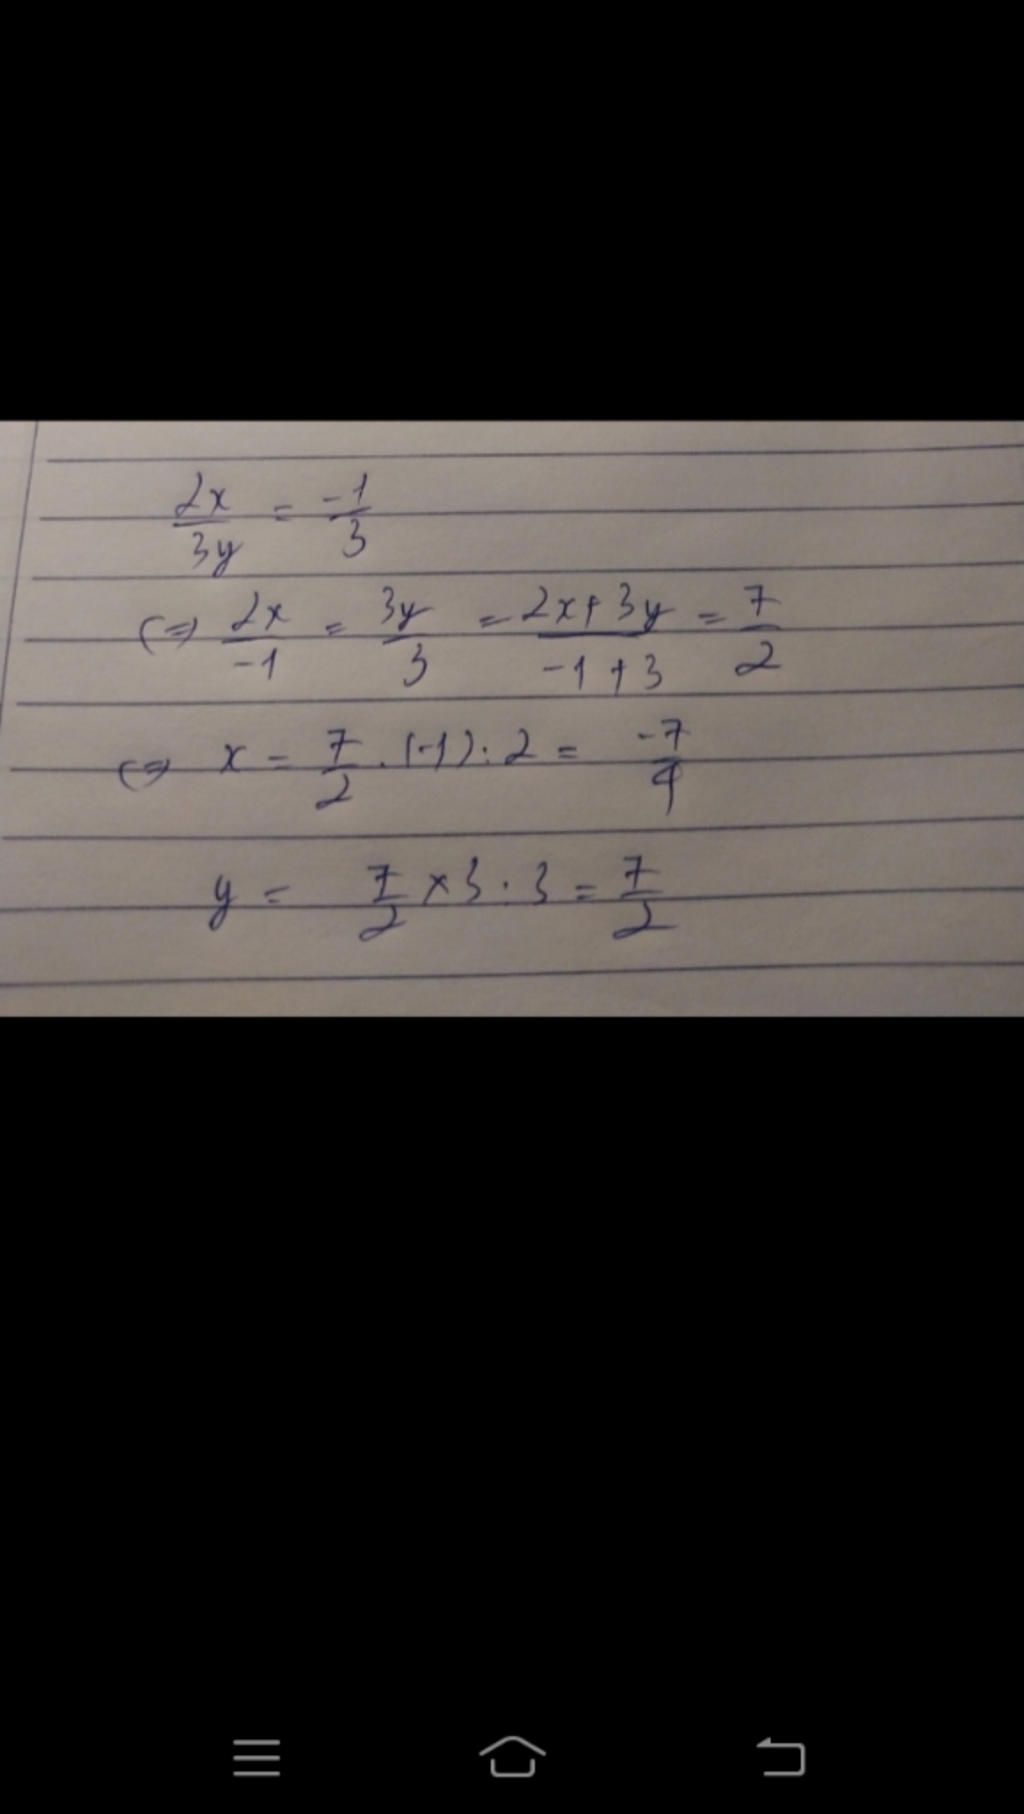 2x/3y = -1/3
(=> 2x/-1 = 3y/3 = 2x+3y/-1+3 = 7/2
(=> x = 7/2 . (-1) : 2 = -7/4
y = 7/2 x 3 : 3 = 7/2